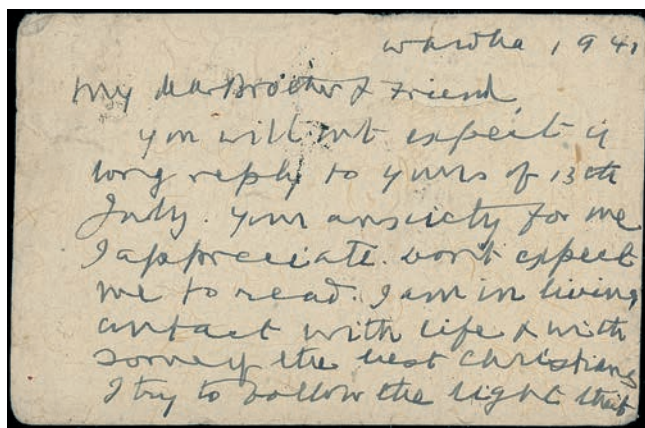 Wardha, 1941
My dear Brother & Friend,
you will not expect a
long reply to yours of 13th
July. your anxiety for me
I appreciate. Don't expect
me to read. I am in living
contact with life & with
some of the best Christians
I try to follow the light that